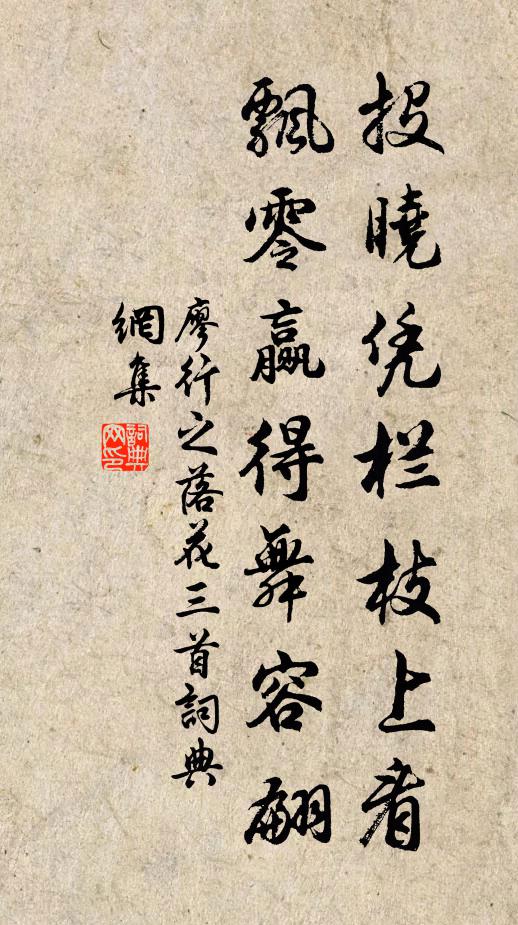 投曉凭栏枝上看
飄零贏得舞容翩
廖行之落花三首詞典
網集
詞典
网印